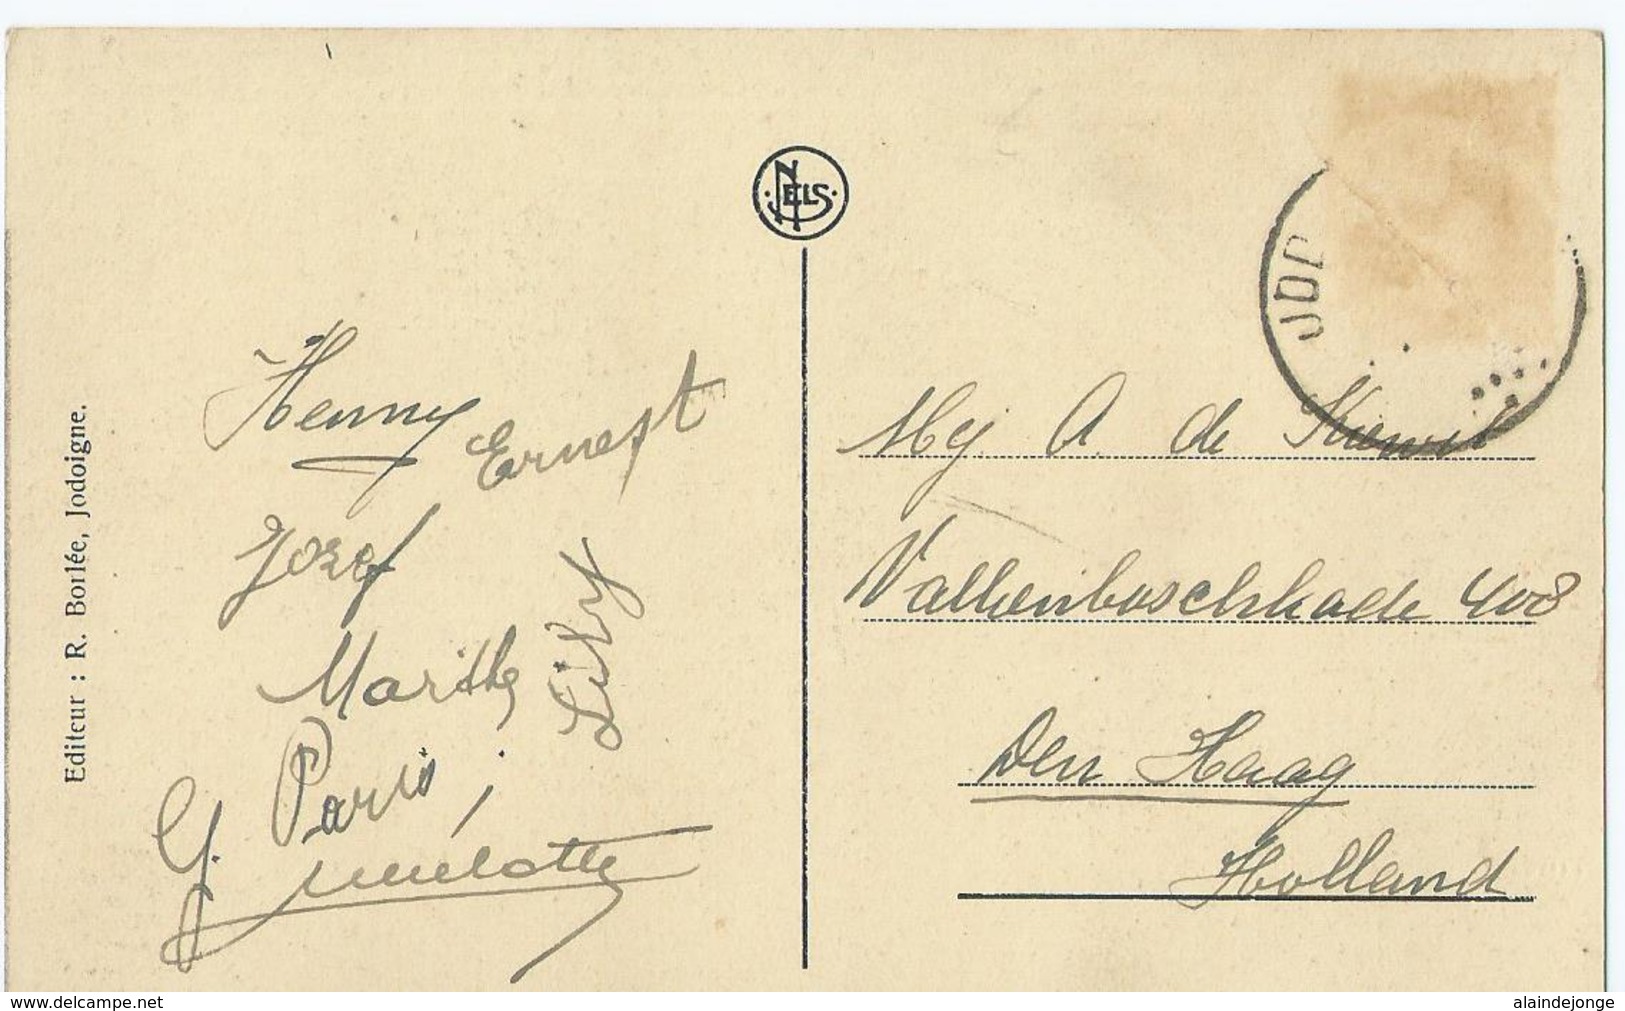 NELS
JOD
Editeur : R. Borlée, Jodoigne.
Henny
Ernest
Jozef
Marthe
Lily
G. Paris
Mej A. de
Valkenboschkade 408
Den Haag
Holland
www.delcampe.net
alaindejonge